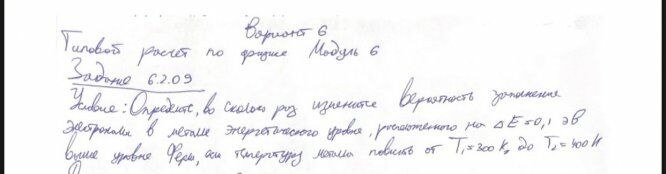 Вариант 6
Типовой расчет по физике Модуль 6
Задание 6.2.09
Условие: Определите, во сколько раз изменится вероятность заполнения
электронами в металле энергетического уровня, расположенного на ΔE=0,1 эВ
выше уровня Ферми, если температура металла повысить от T₁=300 K, до T₂=400 K